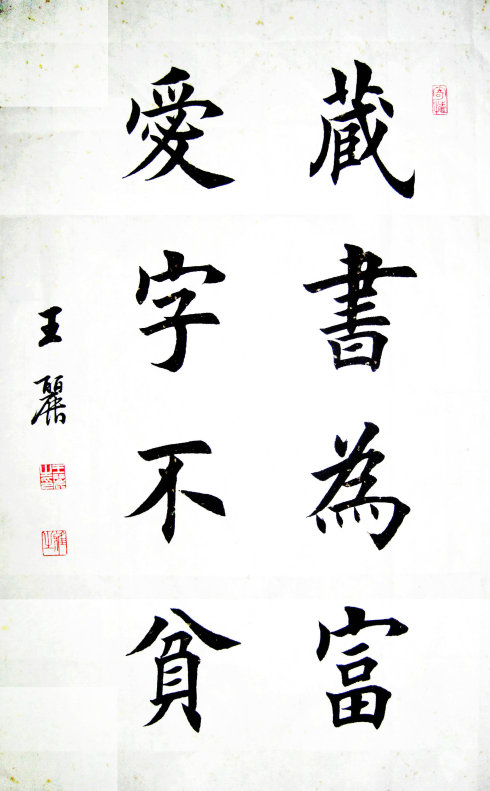 藏書為富
愛字不貧
王麗